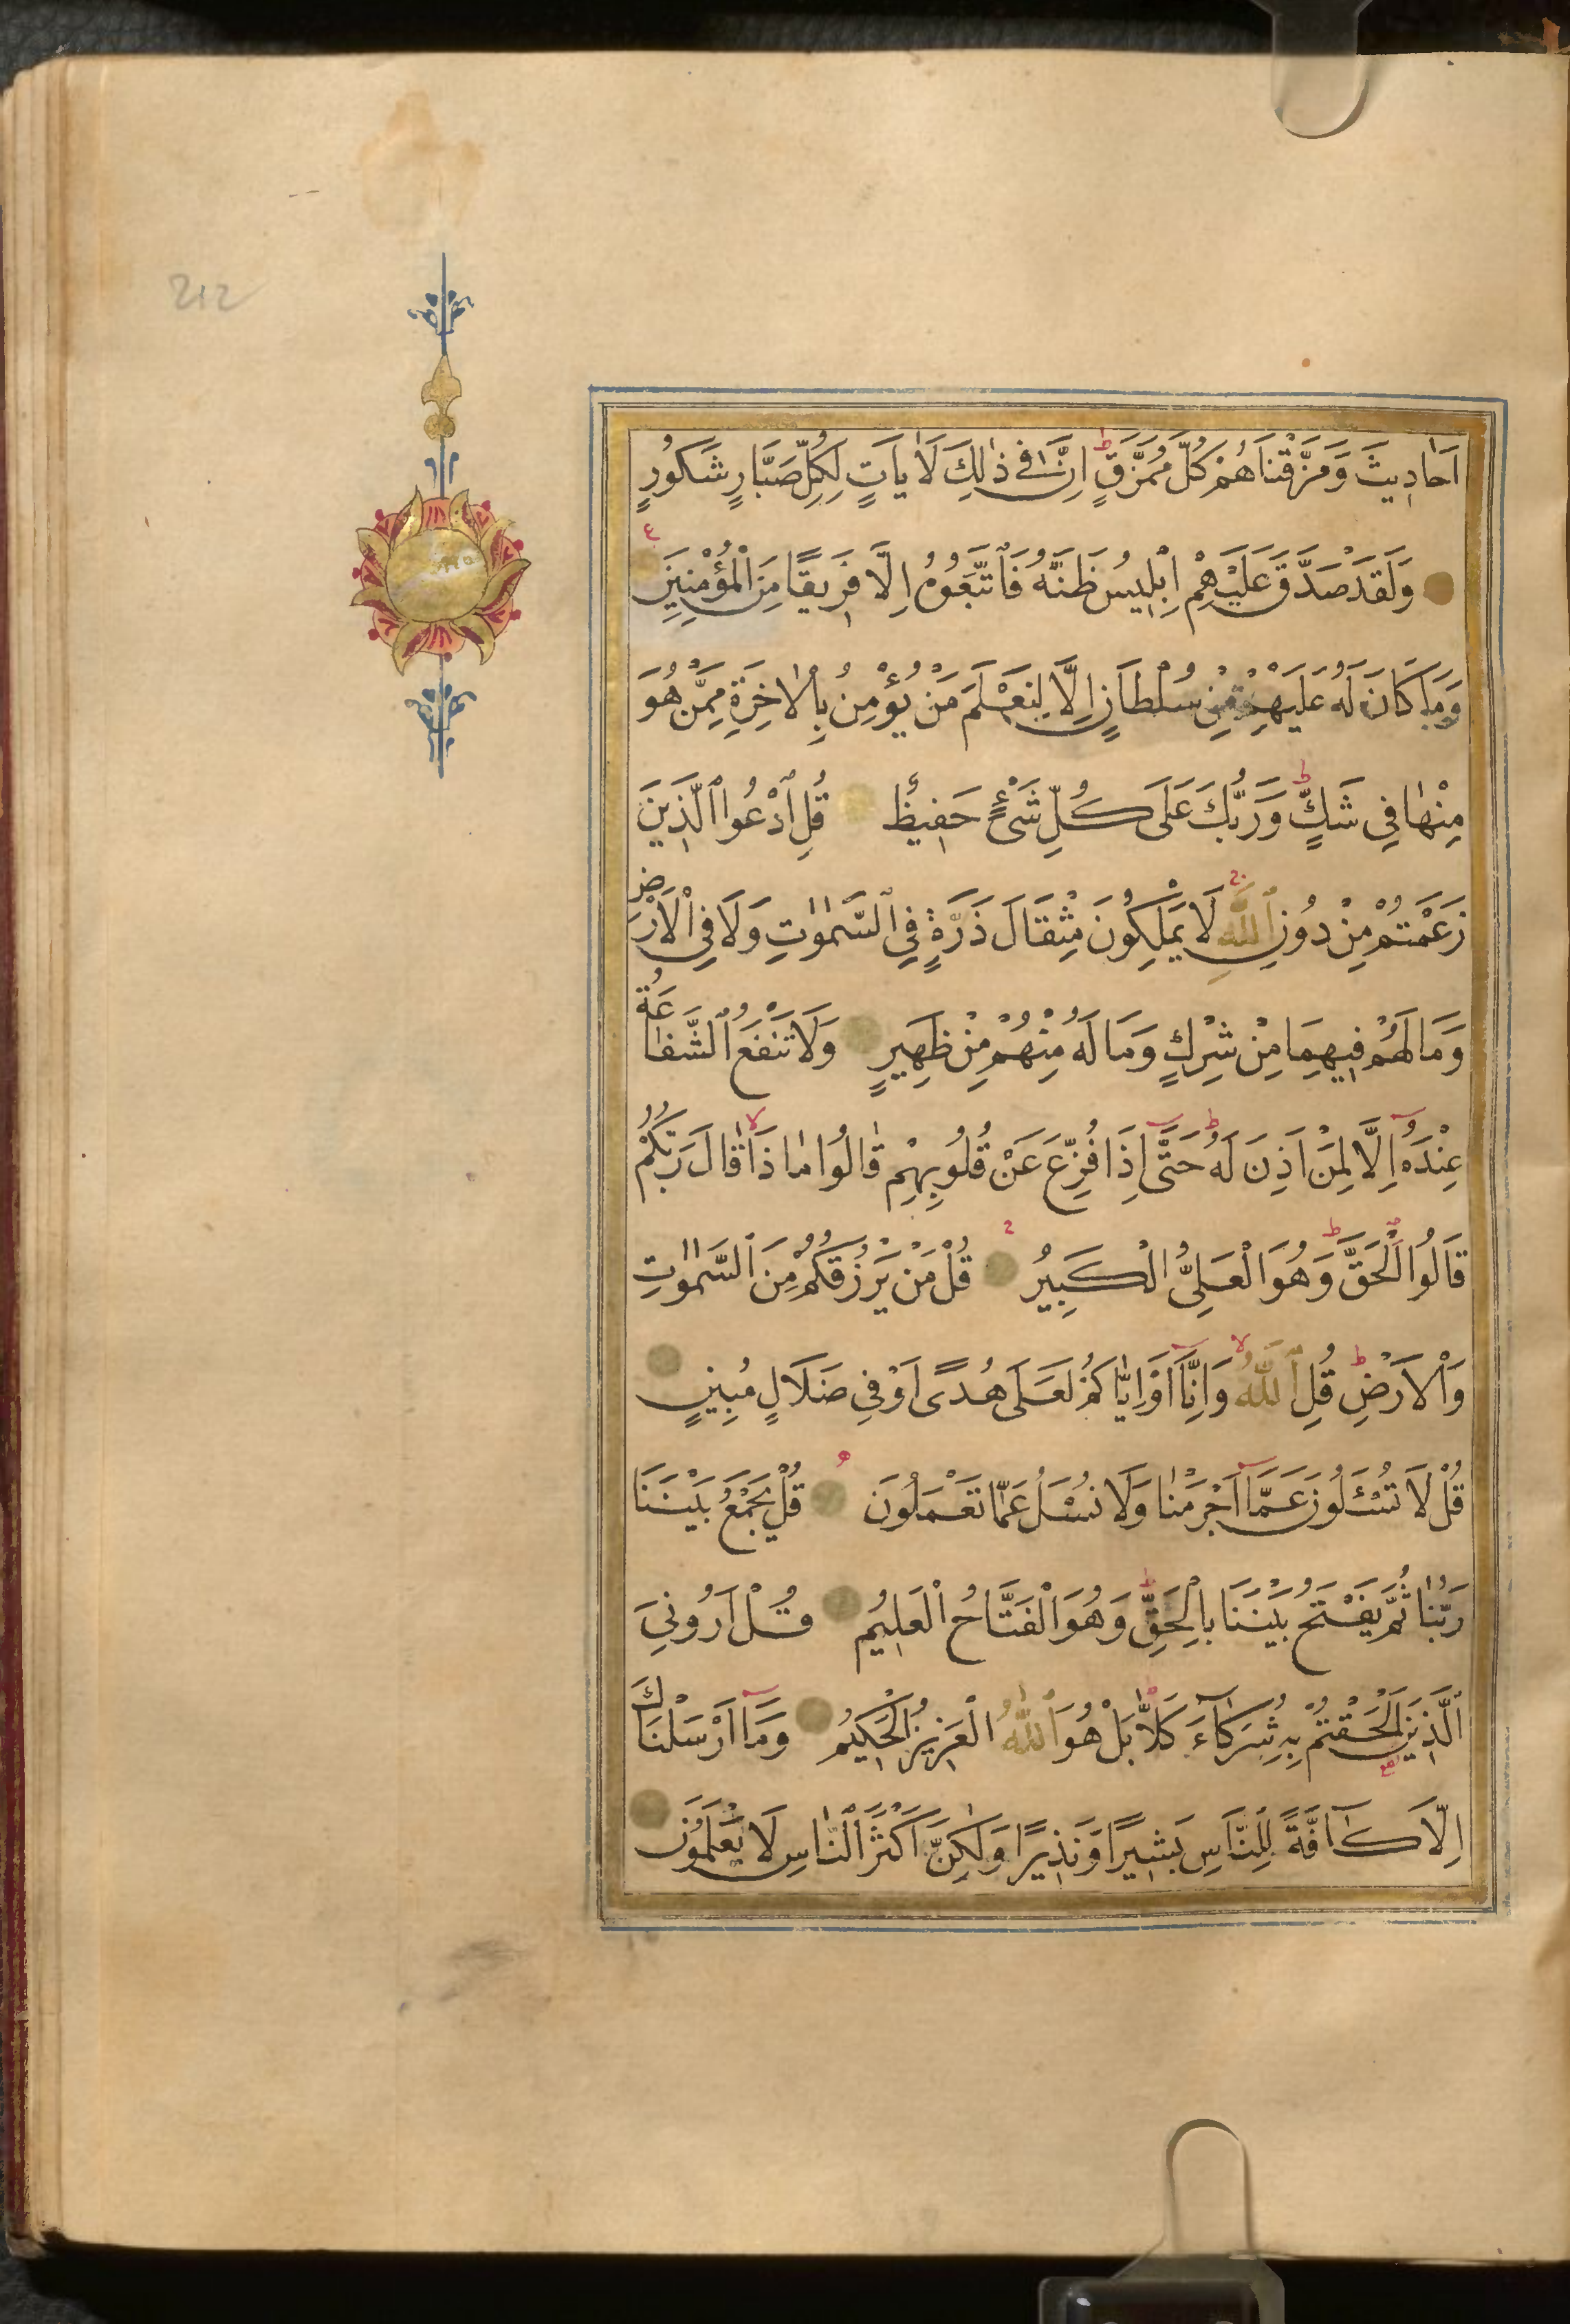 212
اَحَادِيثَ وَمَزَّقْنَاهُمْ كُلَّ مُمَزَّقٍ ط اِنَّ فِي ذٰلِكَ لَاٰيَاتٍ لِكُلِّ صَبَّارٍ شَكُورٍ
ع
وَلَقَدْ صَدَّقَ عَلَيْهِمْ اِبْلِيسُ ظَنَّهُ فَاتَّبَعُوهُ اِلَّا فَرِيقًا مِنَ الْمُؤْمِنِينَ
وَمَا كَانَ لَهُ عَلَيْهِمْ مِنْ سُلْطَانٍ اِلَّا لِنَعْلَمَ مَنْ يُؤْمِنُ بِالْاٰخِرَةِ مِمَّنْ هُوَ
مِنْهَا فِي شَكٍّ ط وَرَبُّكَ عَلَى كُلِّ شَيْءٍ حَفِيظٌ قُلِ ادْعُوا الَّذِينَ
زَعَمْتُمْ مِنْ دُونِ اللّٰهِ لَا يَمْلِكُونَ مِثْقَالَ ذَرَّةٍ فِي السَّمٰوَاتِ وَلَا فِي الْاَرْضِ
وَمَا لَهُمْ فِيهِمَا مِنْ شِرْكٍ وَمَا لَهُ مِنْهُمْ مِنْ ظَهِيرٍ وَلَا تَنْفَعُ الشَّفَاعَةُ
عِنْدَهُ اِلَّا لِمَنْ اَذِنَ لَهُ ط حَتَّى اِذَا فُزِّعَ عَنْ قُلُوبِهِمْ قَالُوا مَاذَا لا قَالَ رَبُّكُمْ
قَالُوا الْحَقَّ ط وَهُوَ الْعَلِيُّ الْكَبِيرُ قُلْ مَنْ يَرْزُقُكُمْ مِنَ السَّمٰوَاتِ
وَالْاَرْضِ ط قُلِ اللّٰهُ لا وَاِنَّا اَوْ اِيَّاكُمْ لَعَلَى هُدًى اَوْ فِي ضَلَالٍ مُبِينٍ
قُلْ لَا تُسْـَٔلُونَ عَمَّا اَجْرَمْنَا وَلَا نُسْـَٔلُ عَمَّا تَعْمَلُونَ قُلْ يَجْمَعُ بَيْنَنَا
رَبُّنَا ثُمَّ يَفْتَحُ بَيْنَنَا بِالْحَقِّ ط وَهُوَ الْفَتَّاحُ الْعَلِيمُ قُلْ اَرُونِيَ
الَّذِينَ اَلْحَقْتُمْ بِهِ شُرَكَاءَ كَلَّا بَلْ هُوَ اللّٰهُ الْعَزِيزُ الْحَكِيمُ وَمَا اَرْسَلْنَاكَ
اِلَّا كَافَّةً لِلنَّاسِ بَشِيرًا وَنَذِيرًا وَلٰكِنَّ اَكْثَرَ النَّاسِ لَا يَعْلَمُونَ